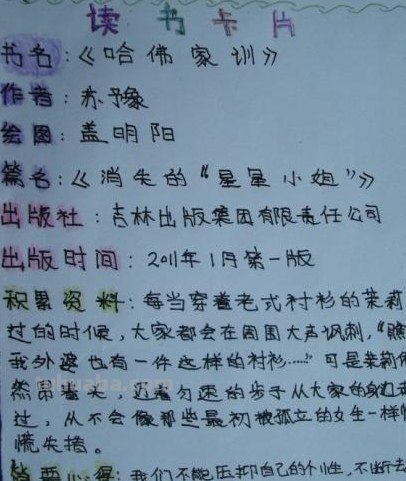 读书卡片
书名:《哈佛家训》
作者:苏豫
绘图:盖明阳
篇名:《消失的“星星小姐”》
出版社:吉林出版集团有限责任公司
出版时间:2011年1月第一版
积累资料:每当穿着老式衬衫的茱莉
过的时候,大家都会在周围大声讽刺,“瞧
我外婆也有一件这样的衬衫……”可是茱莉
然 着头,迈着匀速的步子从大家的身边
过,从不会像那些最初被孤立的女生一样
慌失措。
心得:我们不能压抑自己的个性,不断去